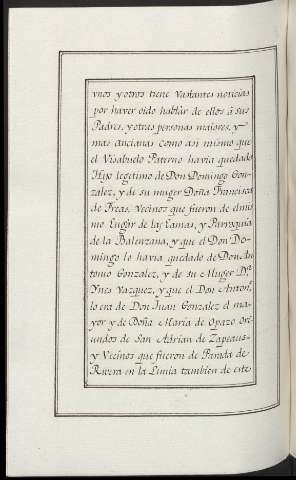 vnos y otros tiene Vastantes noticias
por haver oido hablar de ellos á sus
Padres, y otras personas maiores, y
mas ancianas como asi mismo que
el Visabuelo Paterno havia quedado
Hijo legitimo de Don Domingo Gon-
zalez, y de su muger Doña Francisca
de Freas, Vecinos que fueron de el mis
mo Lugár de las Lamas, y Parroquia
de la Balenzana, y que el Don Do-
mingo le havia quedado de Don An
tonio Gonzalez, y de su Muger Dª
Ynes Vazquez, y que el Don Anton.
lo era de Don Juan Gonzalez el ma
yor y de Doña Maria de Opazo ori
undos de San Adrian de Zapeaus-
y Vecinos que fueron de Parada de
Rivera en la Limia tambien de este